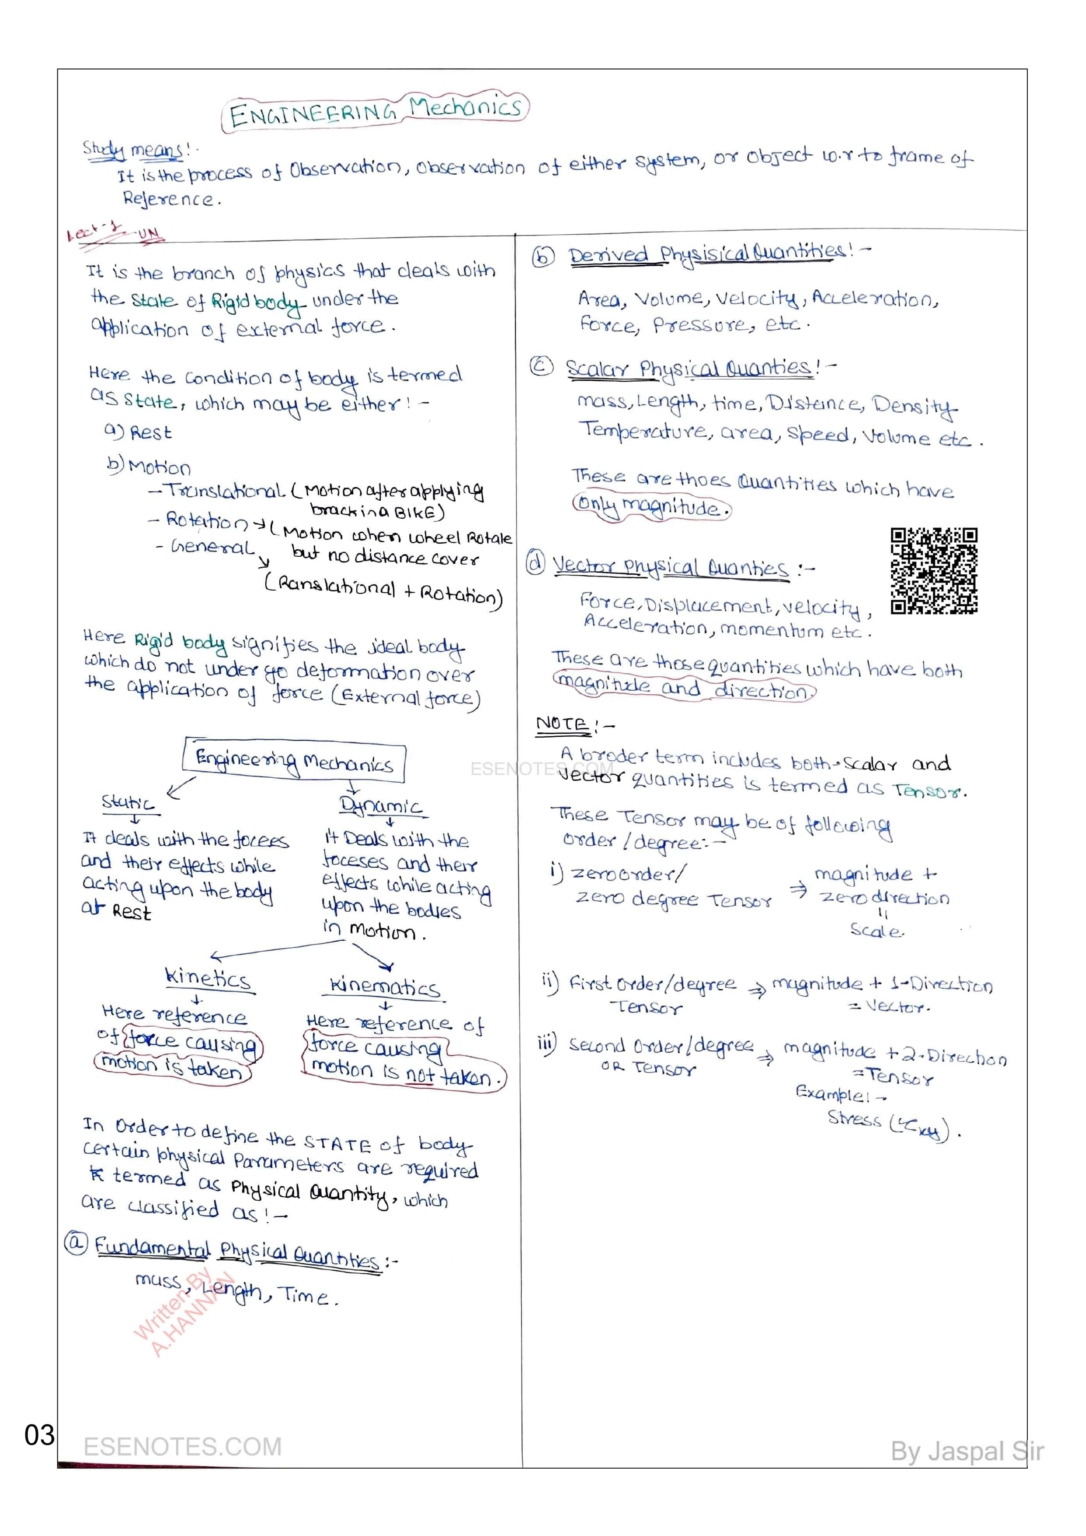 ENGINEERING Mechanics
Study means!-
It is the process of Observation, Observation of either system, or object w.r to frame of
Reference.
Lect-1 UN
It is the branch of physics that deals with
the State of Rigid body under the
application of external force.
Here the condition of body is termed
as state, which may be either! -
a) Rest
b) Motion
- Translational (Motion after applying
brack in a BIKE)
- Rotation → (Motion when wheel Rotate
but no distance cover
- General
(Ranslational + Rotation)
Here Rigid body signifies the ideal body
which do not under go deformation over
the application of force (External force)
Engineering Mechanics
Static
It deals with the forces
and their effects while
acting upon the body
at Rest
Dynamic
It Deals with the
foceses and their
effects while acting
upon the bodies
in motion.
Kinetics
Here reference
of force causing
motion is taken
Kinematics
Here reference of
force causing
motion is not taken.
In Order to define the STATE of body
certain physical Parameters are required
termed as Physical Quantity, which
are classified as! -
(a) Fundamental Physical Quantities :-
mass, Length, Time.
Written By
A.HANNAN
(b) Derived Physisical Quantities! -
Area, Volume, Velocity, Acceleration,
Force, Pressure, etc.
(c) Scalar Physical Quanties! -
mass, Length, time, Distance, Density
Temperature, area, speed, Volume etc.
These are thoes Quantities which have
Only magnitude.
(d) Vector Physical Quanties :-
Force, Displacement, velocity,
Acceleration, momentum etc.
These are those quantities which have both
magnitude and direction
NOTE! -
A broder term includes both scalar and
Vector quantities is termed as Tensor.
ESENOTES.COM
These Tensor may be of following
order / degree: -
i) zero order/
zero degree Tensor ⇒ magnitude +
zero direction
=
Scale.
ii) First Order/degree ⇒ magnitude + 1-Direction
Tensor = Vector.
iii) Second Order/degree ⇒ magnitude + 2-Direction
OR Tensor = Tensor
Example! -
Stress (τxy).
03
ESENOTES.COM
By Jaspal Sir